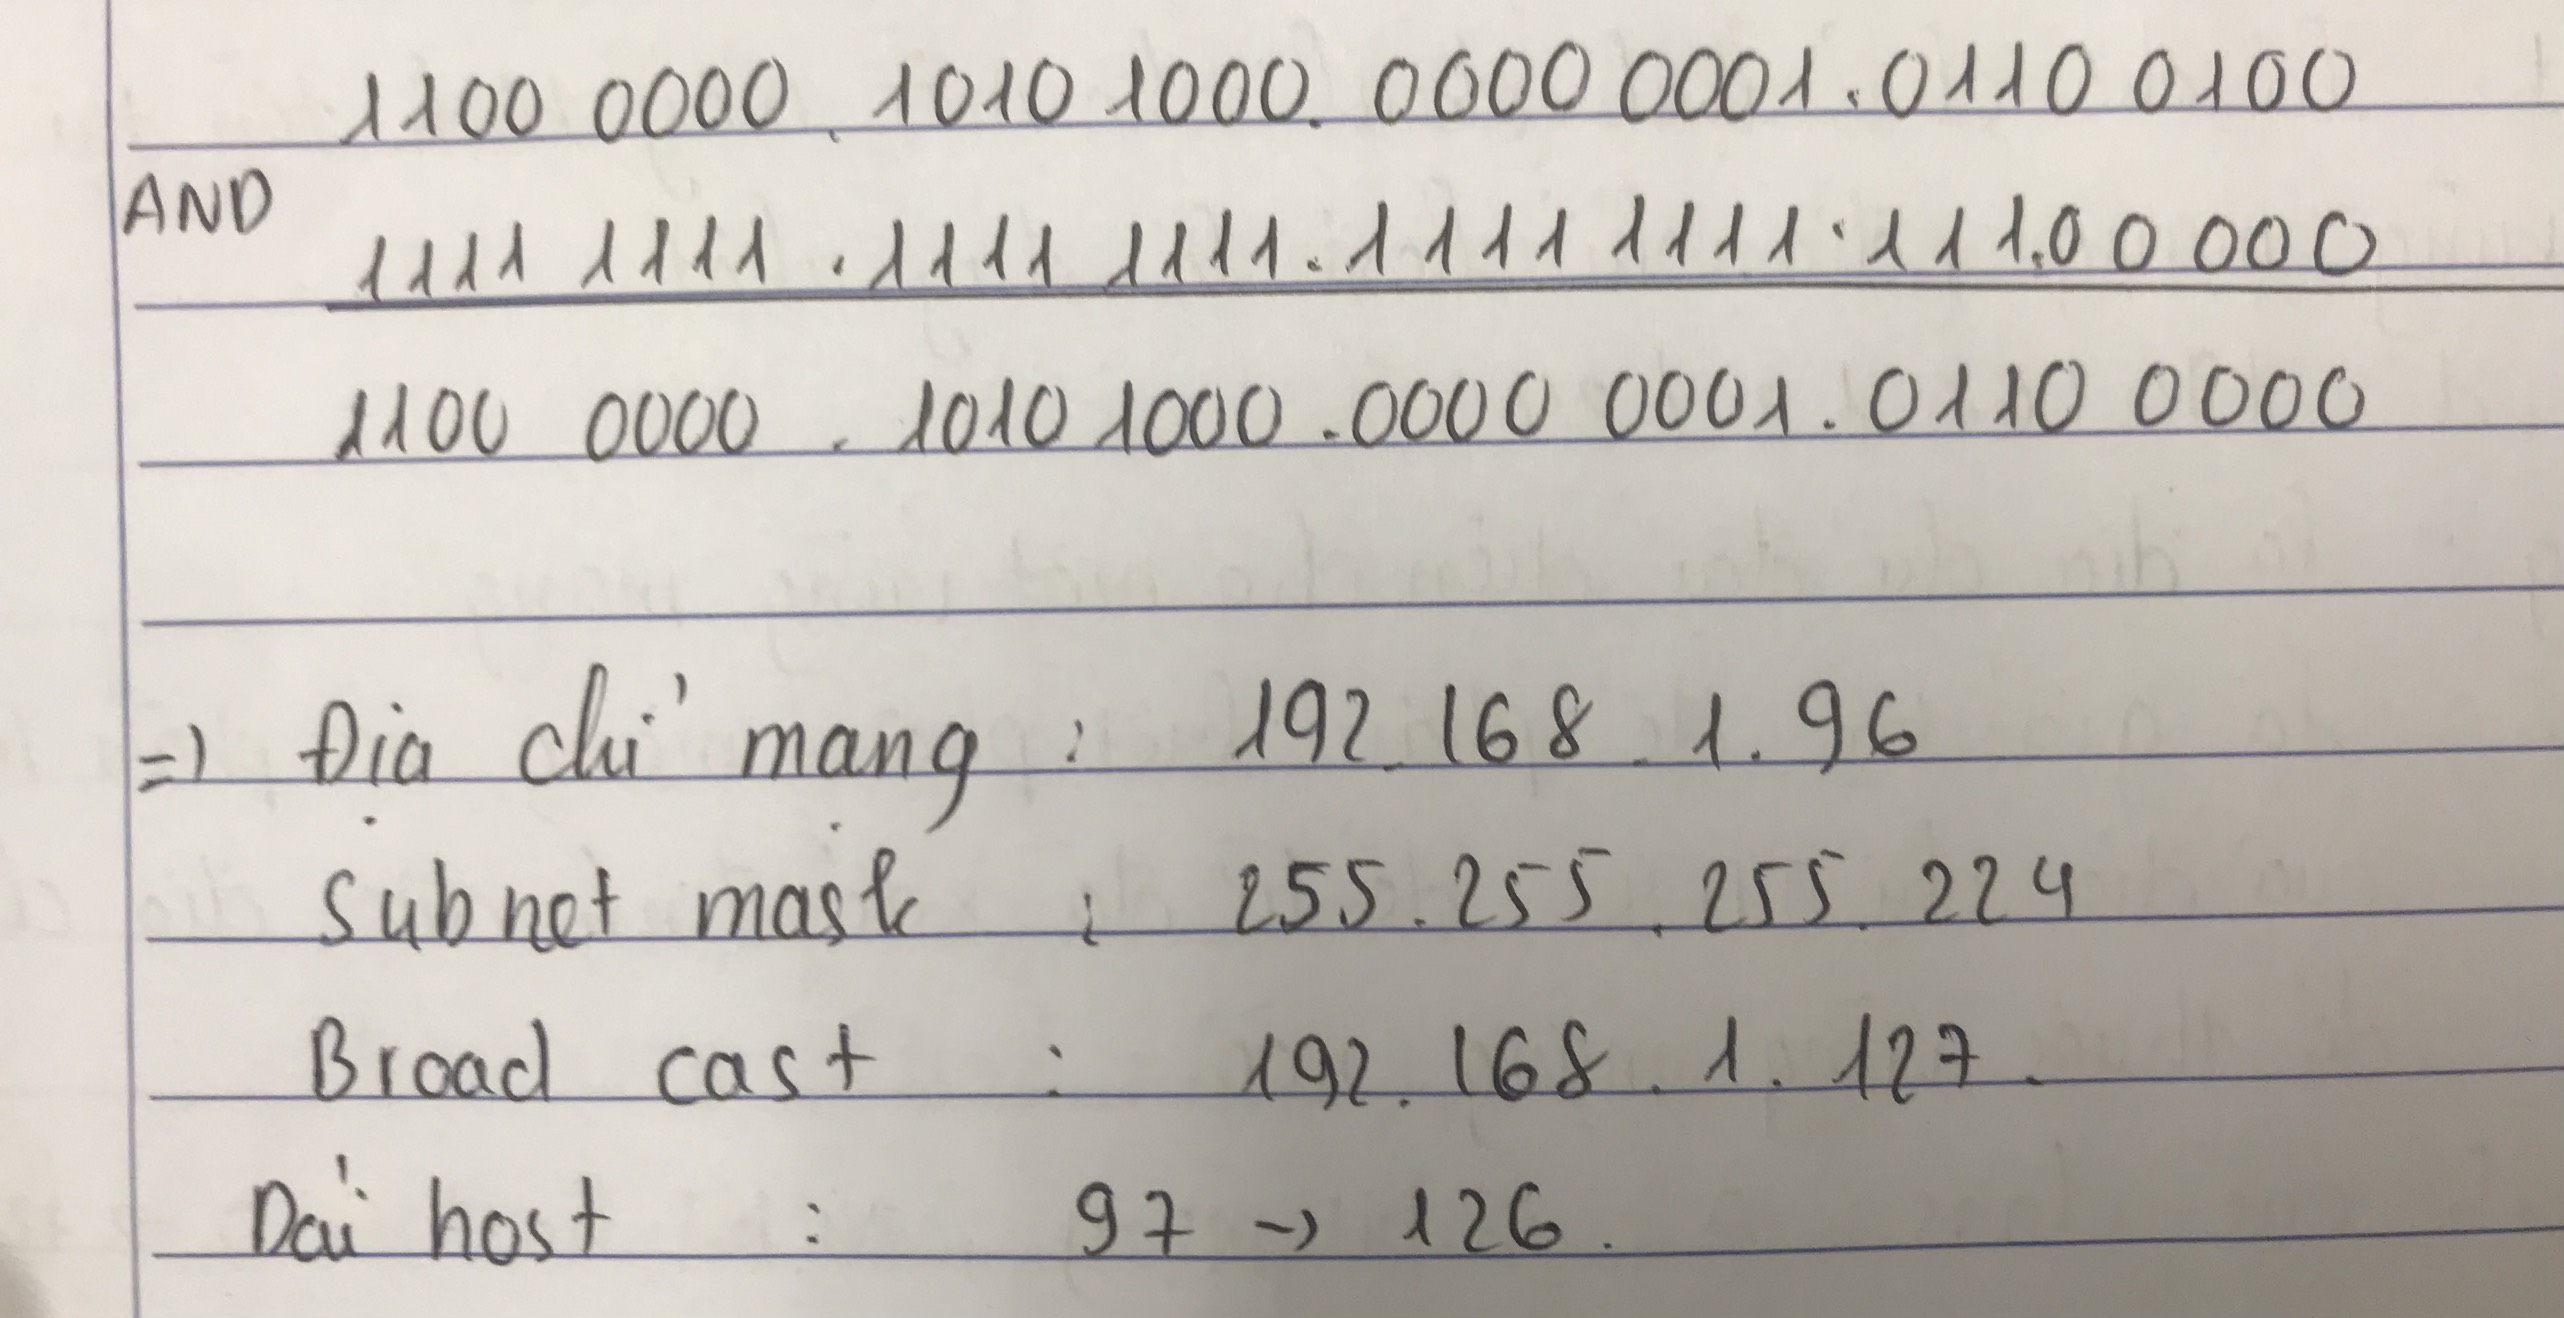 1100 0000. 1010 1000. 0000 0001.0110 0100
AND
1111 1111.1111 1111.1111 1111.111.00000
1100 0000. 1010 1000.0000 0001.0110 0000
=) Địa chỉ mạng : 192.168.1.96
Subnet mask : 255.255.255.224
Broad cast : 192.168.1.127.
Dải host : 97 -> 126.